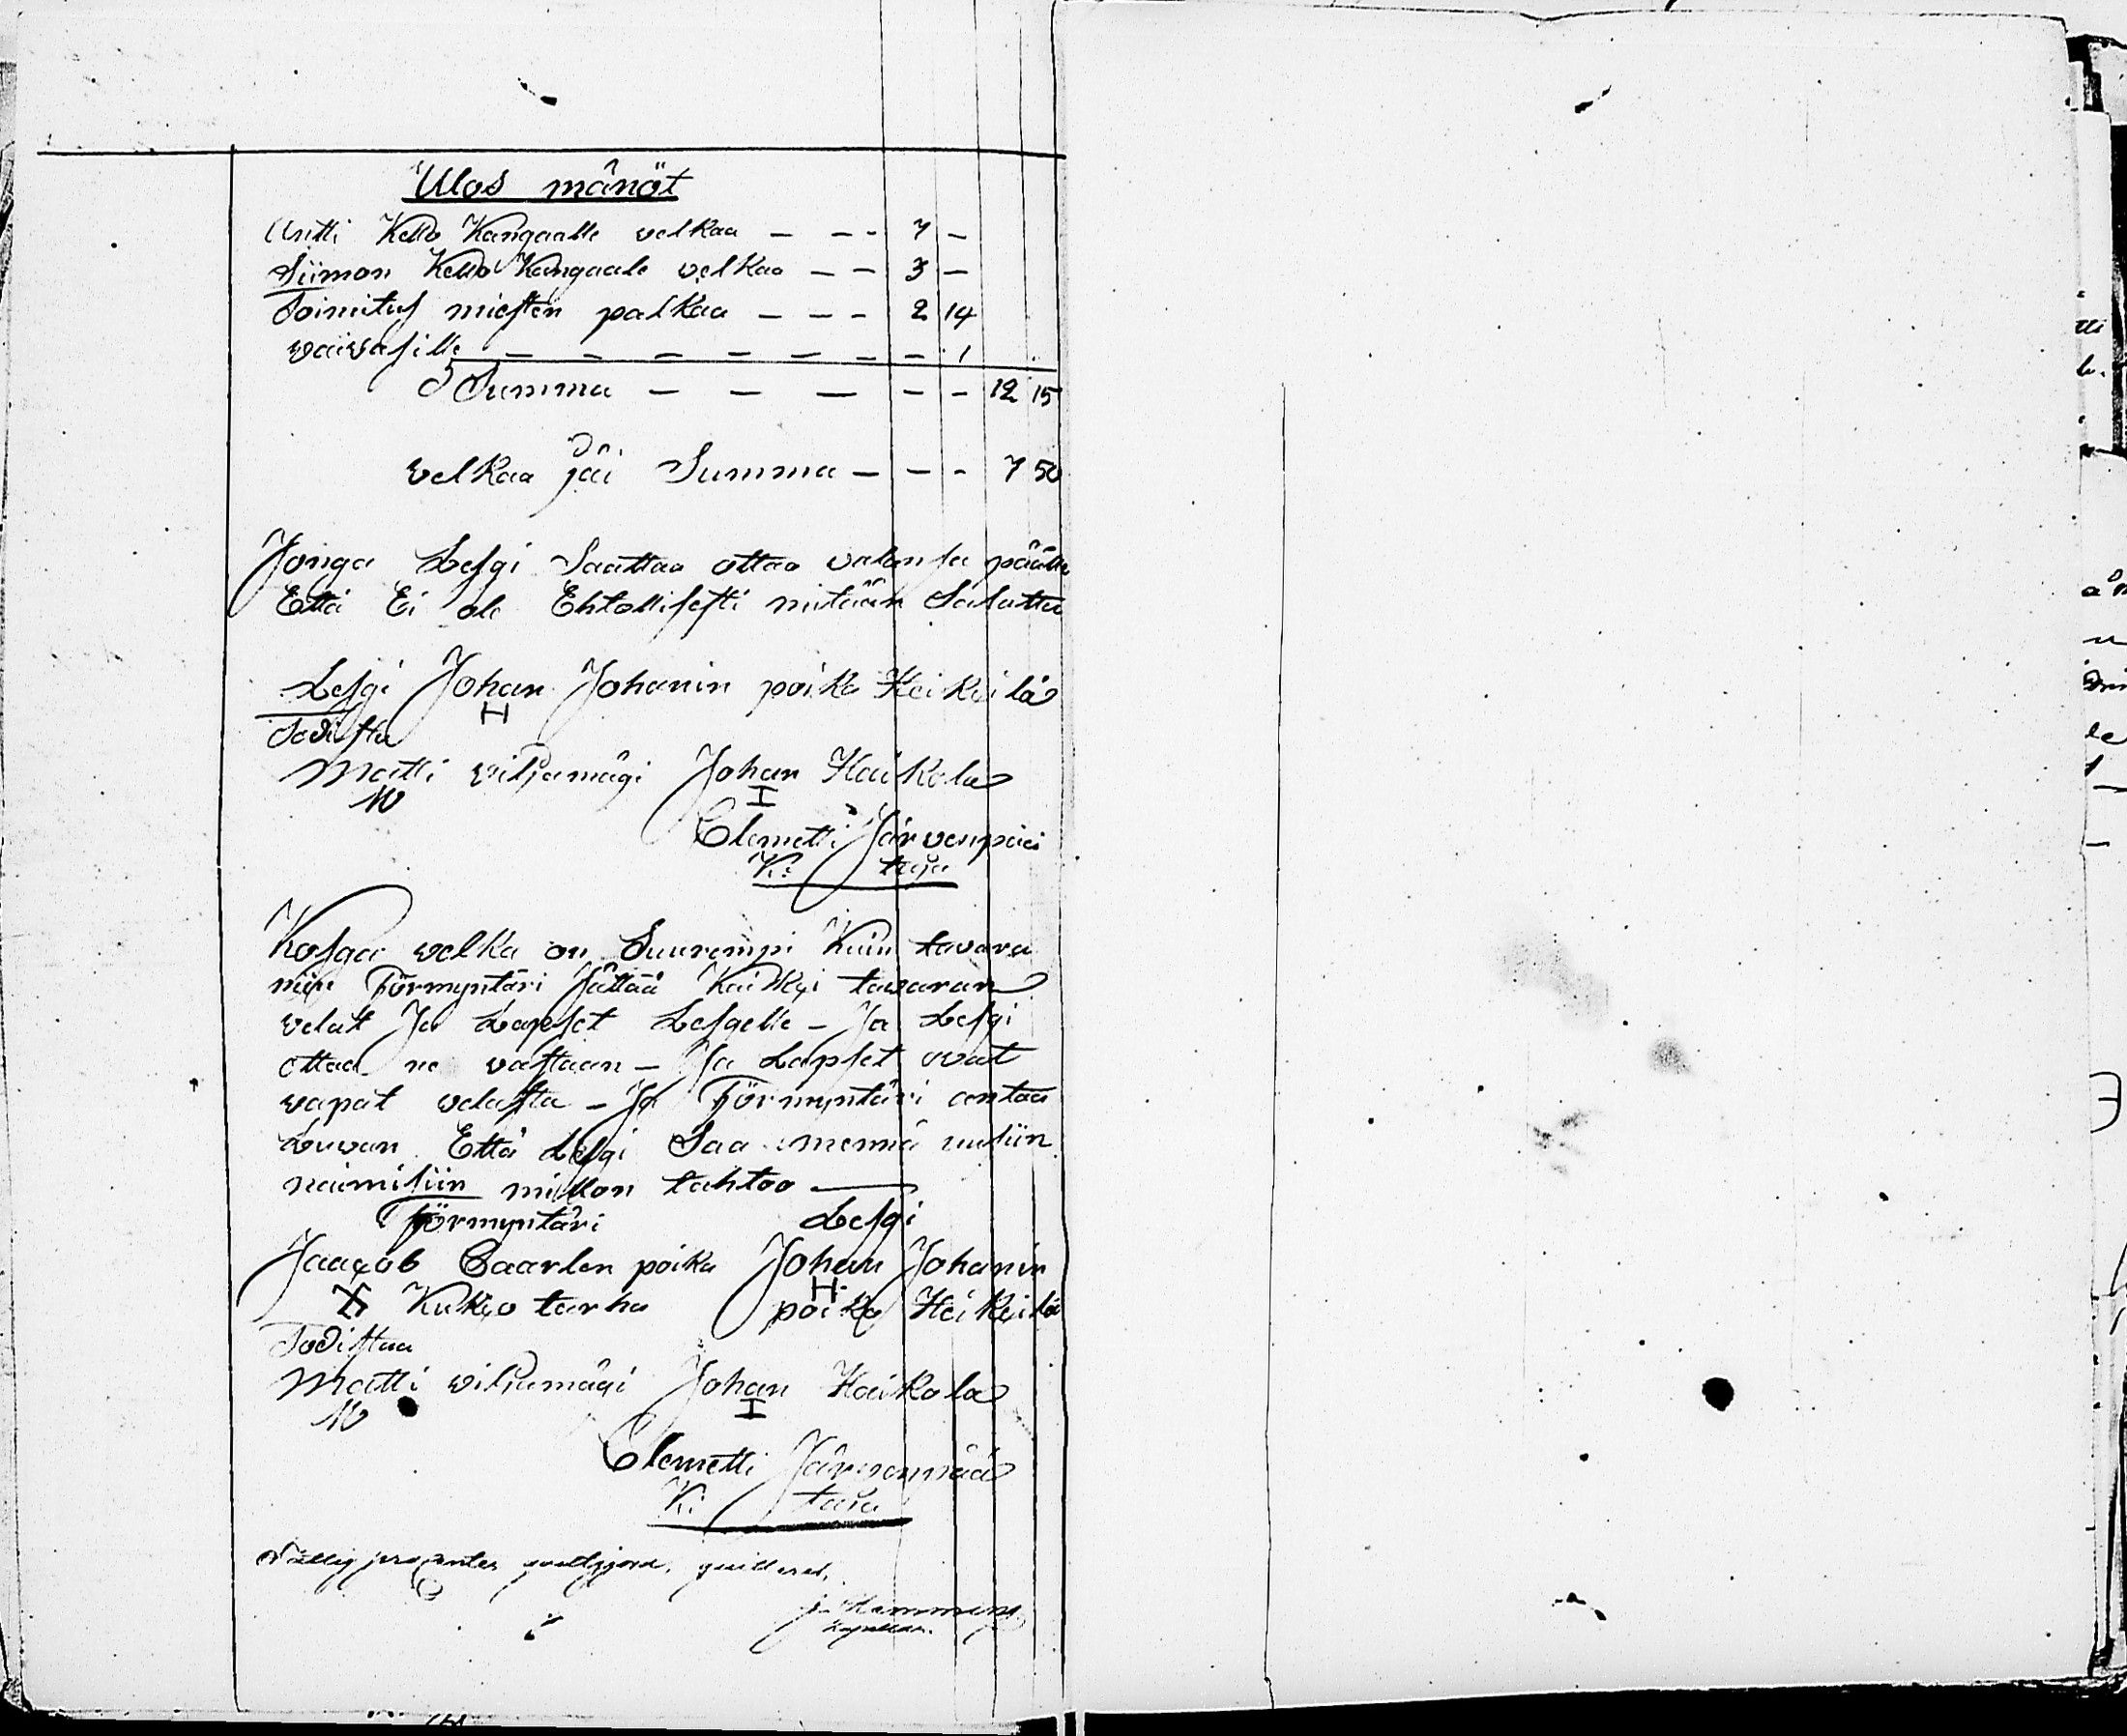 Ulos mänöt
Antti Kello Kangaalle velkaa — — - 7 —
Siimon Kello Kangaale velkaa — — 3 —
Toimitus miesten palkaa — — — 2 14
vaivasille — — — — — — — 1
Summa — — — — — 12 15
velkaa jäi Summa — — - 7 50
Jonga Lesgi Saattaa ottaa valansa päälle
Että Ei ole Ehtollisesti mitään Salattu
Lesgi Johan Johanin poika Heikkilä
H
Todistaa
Matti viljamägi Johan Haikola
M I
Clemetti Järvenpää
K: taja
Kosga velka on Suurempi Kuin tavara
niin Förmyntäri Jättää Kaikki tavaran
velat Ja Lapset Lesgelle — Ja Lesgi
ottaa ne vastaan — Ja Lapset ovat
vapat velasta — Ja Förmyntäri antaa
Luvan Että Lesgi Saa mennä uusiin
naimisiin millon tahtoo —
Förmyntäri Lesgi
Jaacob Caarlen poika Johan Johanin
H
Kukko tarha poika Heikkilä
Todistaa
Matti viljamägi Johan Haikola
M I
Clemetti Järvenpää
K: taja